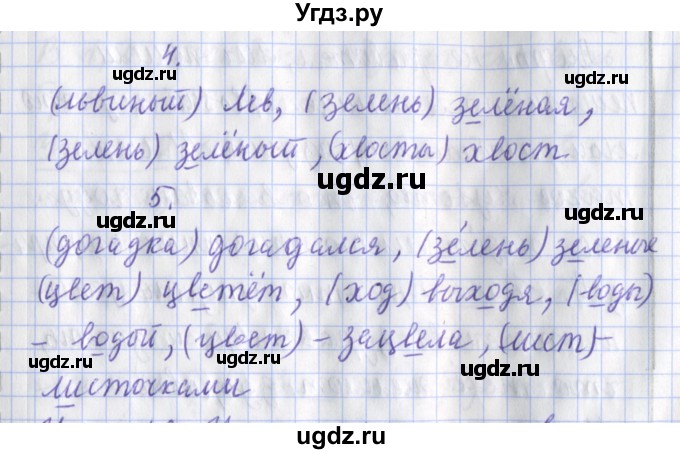 Угдз.ру
4.
ugdz.ru ugdz.ru
(львиный) Лев, (зелень) зелёная,
(зелень) зелёный, (хвосты) хвост
ugdz.ru
5.
ugdz.ru ugdz.ru
(догадка) догадался, (зелень) зеленых
ugdz.ru
(цвет) цветёт, (ход) выходя, (воды)
- водый, (цвет) - зацвела, (лист)-
ugdz.ru ugdz.ru
листочками
ugdz.ru